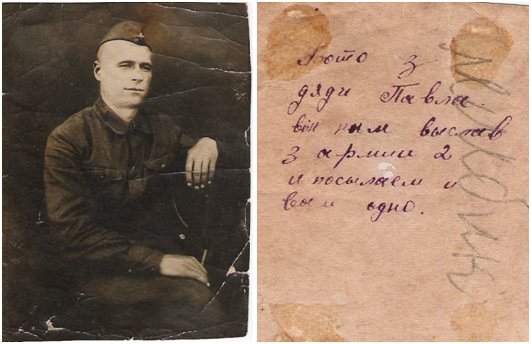 Фото з
дяди Павла
він нам выслав
з армии 2
и посылаем и
вам одно.